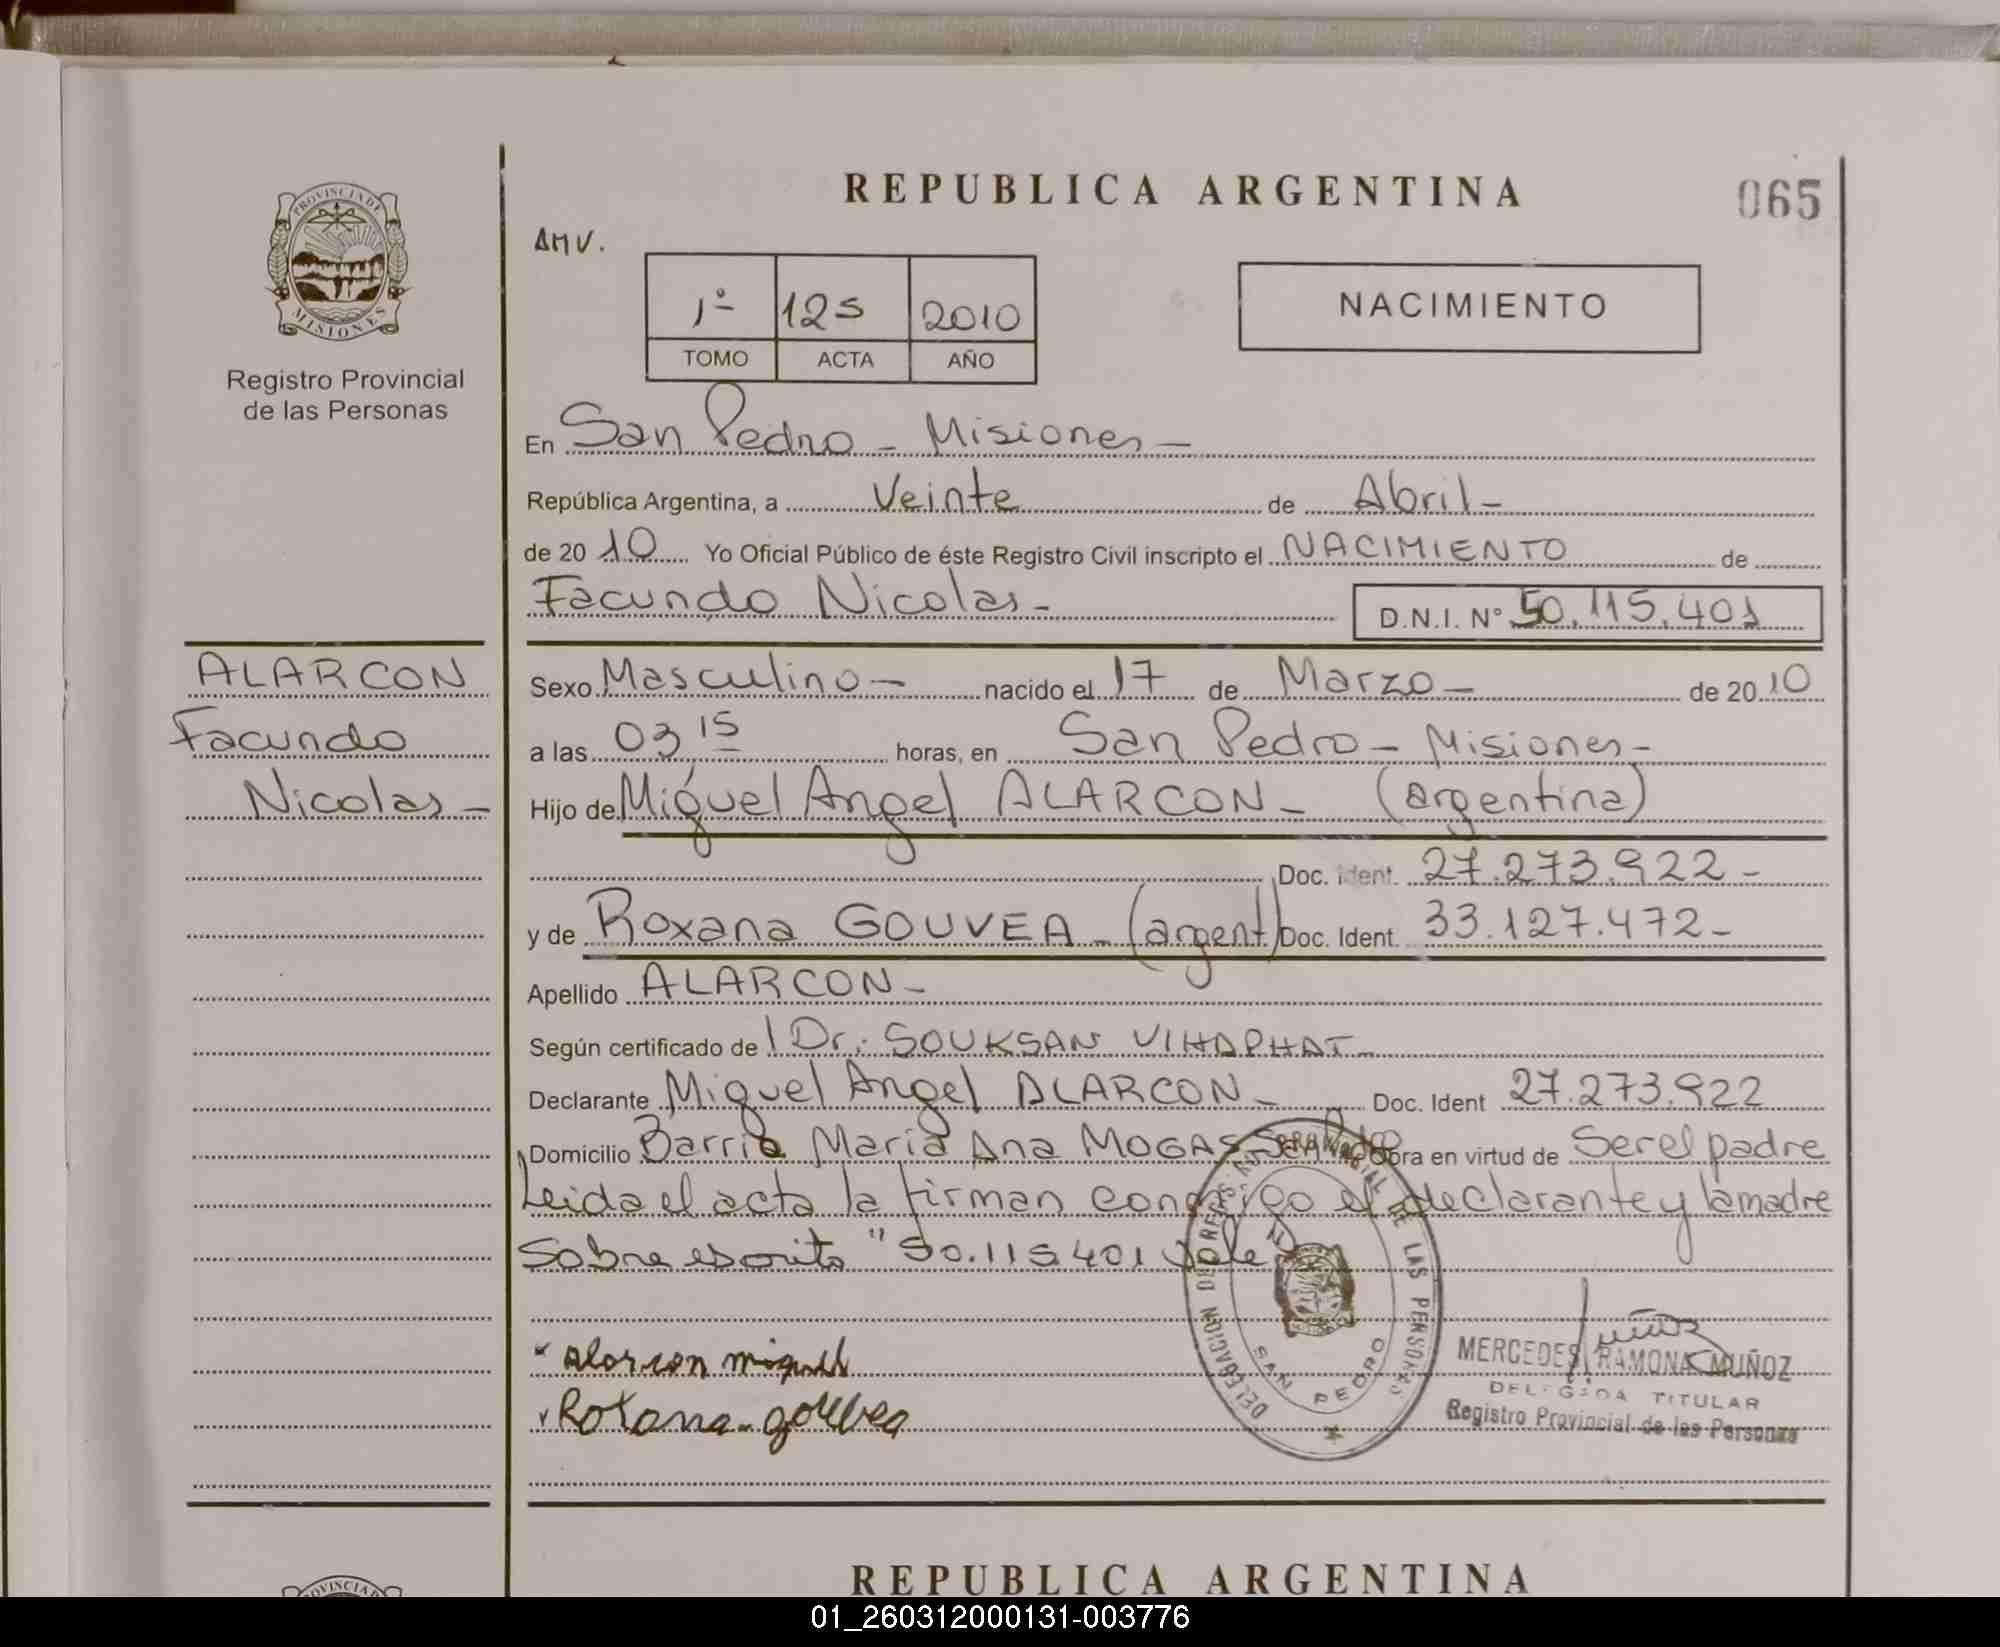 REPUBLICA ARGENTINA
065
PROVINCIA DE
MISIONES
Registro Provincial
de las Personas
AMV.
1º 125 2010
TOMO ACTA AÑO
NACIMIENTO
En San Pedro - Misiones -
República Argentina, a Veinte de Abril -
de 20 10 Yo Oficial Público de éste Registro Civil inscripto el NACIMIENTO de
Facundo Nicolas -
D.N.I. Nº 50.115.401
ALARCON
Facundo
Nicolas -
Sexo Masculino - nacido el 17 de Marzo - de 20 10
a las 03 15 horas, en San Pedro - Misiones -
Hijo de Miguel Angel ALARCON - (argentina)
Doc. Ident. 27.273.922 -
y de Roxana GOUVEA - (argent) Doc. Ident. 33.127.472 -
Apellido ALARCON -
Según certificado de l Dr: SOUKSAN VIHAPHAT -
Declarante Miguel Angel ALARCON - Doc. Ident 27.273.922
Domicilio Barrio Maria Ana MOGAS San Pdro Obra en virtud de Ser el padre
Leida el acta la firman conmigo el declarante y la madre
Sobre escrito "50.115.401 Vale
Alarcon miguel
Roxana - gouvea
DELEGACION DEL REGISTRO PROVINCIAL DE LAS PERSONAS
SAN PEDRO
MERCEDES RAMONA MUÑOZ
DELEGADA TITULAR
Registro Provincial de las Personas
PROVINCIA DE
REPUBLICA ARGENTINA
01_260312000131-003776